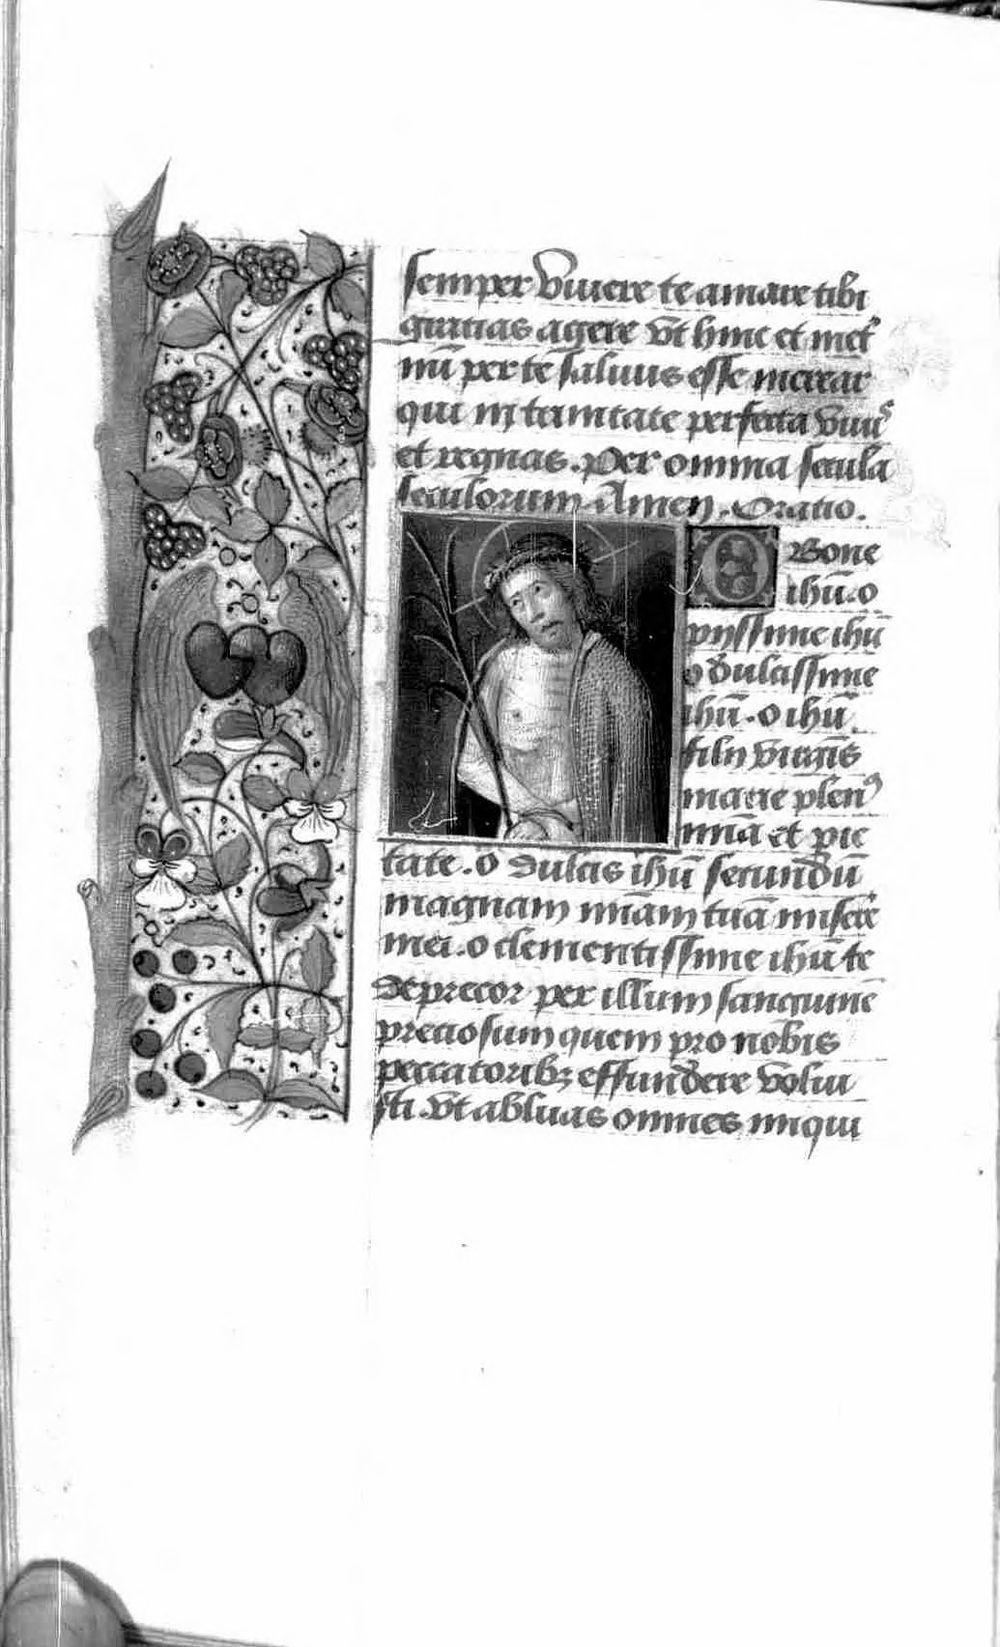 semper viuere te amare tibi
gratias agere vt hinc et inet̾
nū per te saluus esse merear
qui in trinitate perfecta viuis
et regnas. Per omnia secula
seculorum Amen. Oratio.
O Bone
ihū. o
pijssime ihū
o dulcissime
ihū. o ihū
filij virgīs
marie plenꝰ
mīa et pie
tate. o dulcis ihū secundū
magnam mīam tuā misere
mei. o clementissime ihū te
deprecor per illum sanguinē
preciosum quem pro nobis
peccatoribꝫ effundere volui
sti. vt abluas omnes iniqui